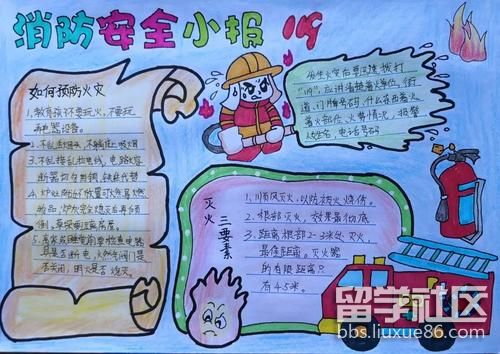 消防安全小报 119
如何预防火灾
1.教育孩子不要玩火,不要玩
弄电器设备。
2.不乱丢烟头,不躺在床上吸烟
3.不乱接乱拉电线,电路熔
断器切勿用铜、铁丝代替
4.炉灶附近不放置可燃易燃
物品,炉灰完全熄灭后再倾
倒,草垛要远离房屋。
5.离家或睡觉前要检查电器
具是否断电,燃气阀门是
否关闭,明火是否熄灭。
发生火灾后要迅速拨打
"119",应讲清楚着火单位、街
道、门牌号码、什么东西着火
着火部位、火势情况、报警
人姓名、电话号码
灭火三要素
1.顺风灭火,以防被火烧伤。
2.根部灭火,效果最彻底
3.距离根部2-3米处灭火,
最佳距离。灭火器
的有限距离只
有4.5米。
留学社区
bbs.liuxue86.com